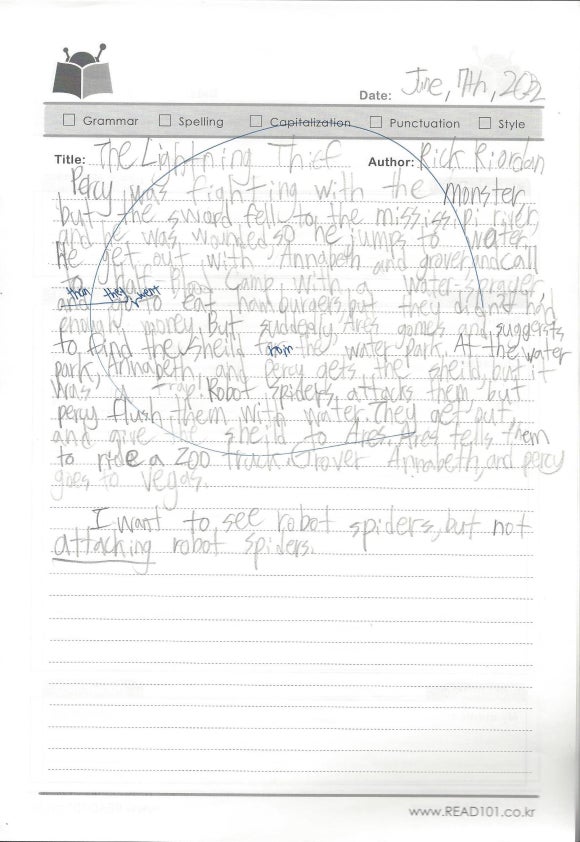 Date: June, 7th, 2022
Grammar Spelling Capitalization Punctuation Style
Title: The Lightning Thief Author: Rick Riordan
Percy was fighting with the monster,
but the sword fell to the missis pi river,
and he was wounded so he jumps to water.
He get out with Annabeth and grover and call
to Half-Blood Camp with a water-sprayer,
then they went
and go to eat hamburgers, but they didn't had
enough money. But suddedly, Ares comes and suggests
to faind the sheild from the water park. At the water
park, Annabeth, and percy gets the sheild, but it
was a trap! Robot spiders, attacks them, but
percy flush them with water. They get out,
and give the sheild to Ares Ares tells them
to ride a zoo truck. Grover Annabeth, and percy
goes to vegas.
I want to see robot spiders, but not
attacking robot spiders.
www.READ101.co.kr